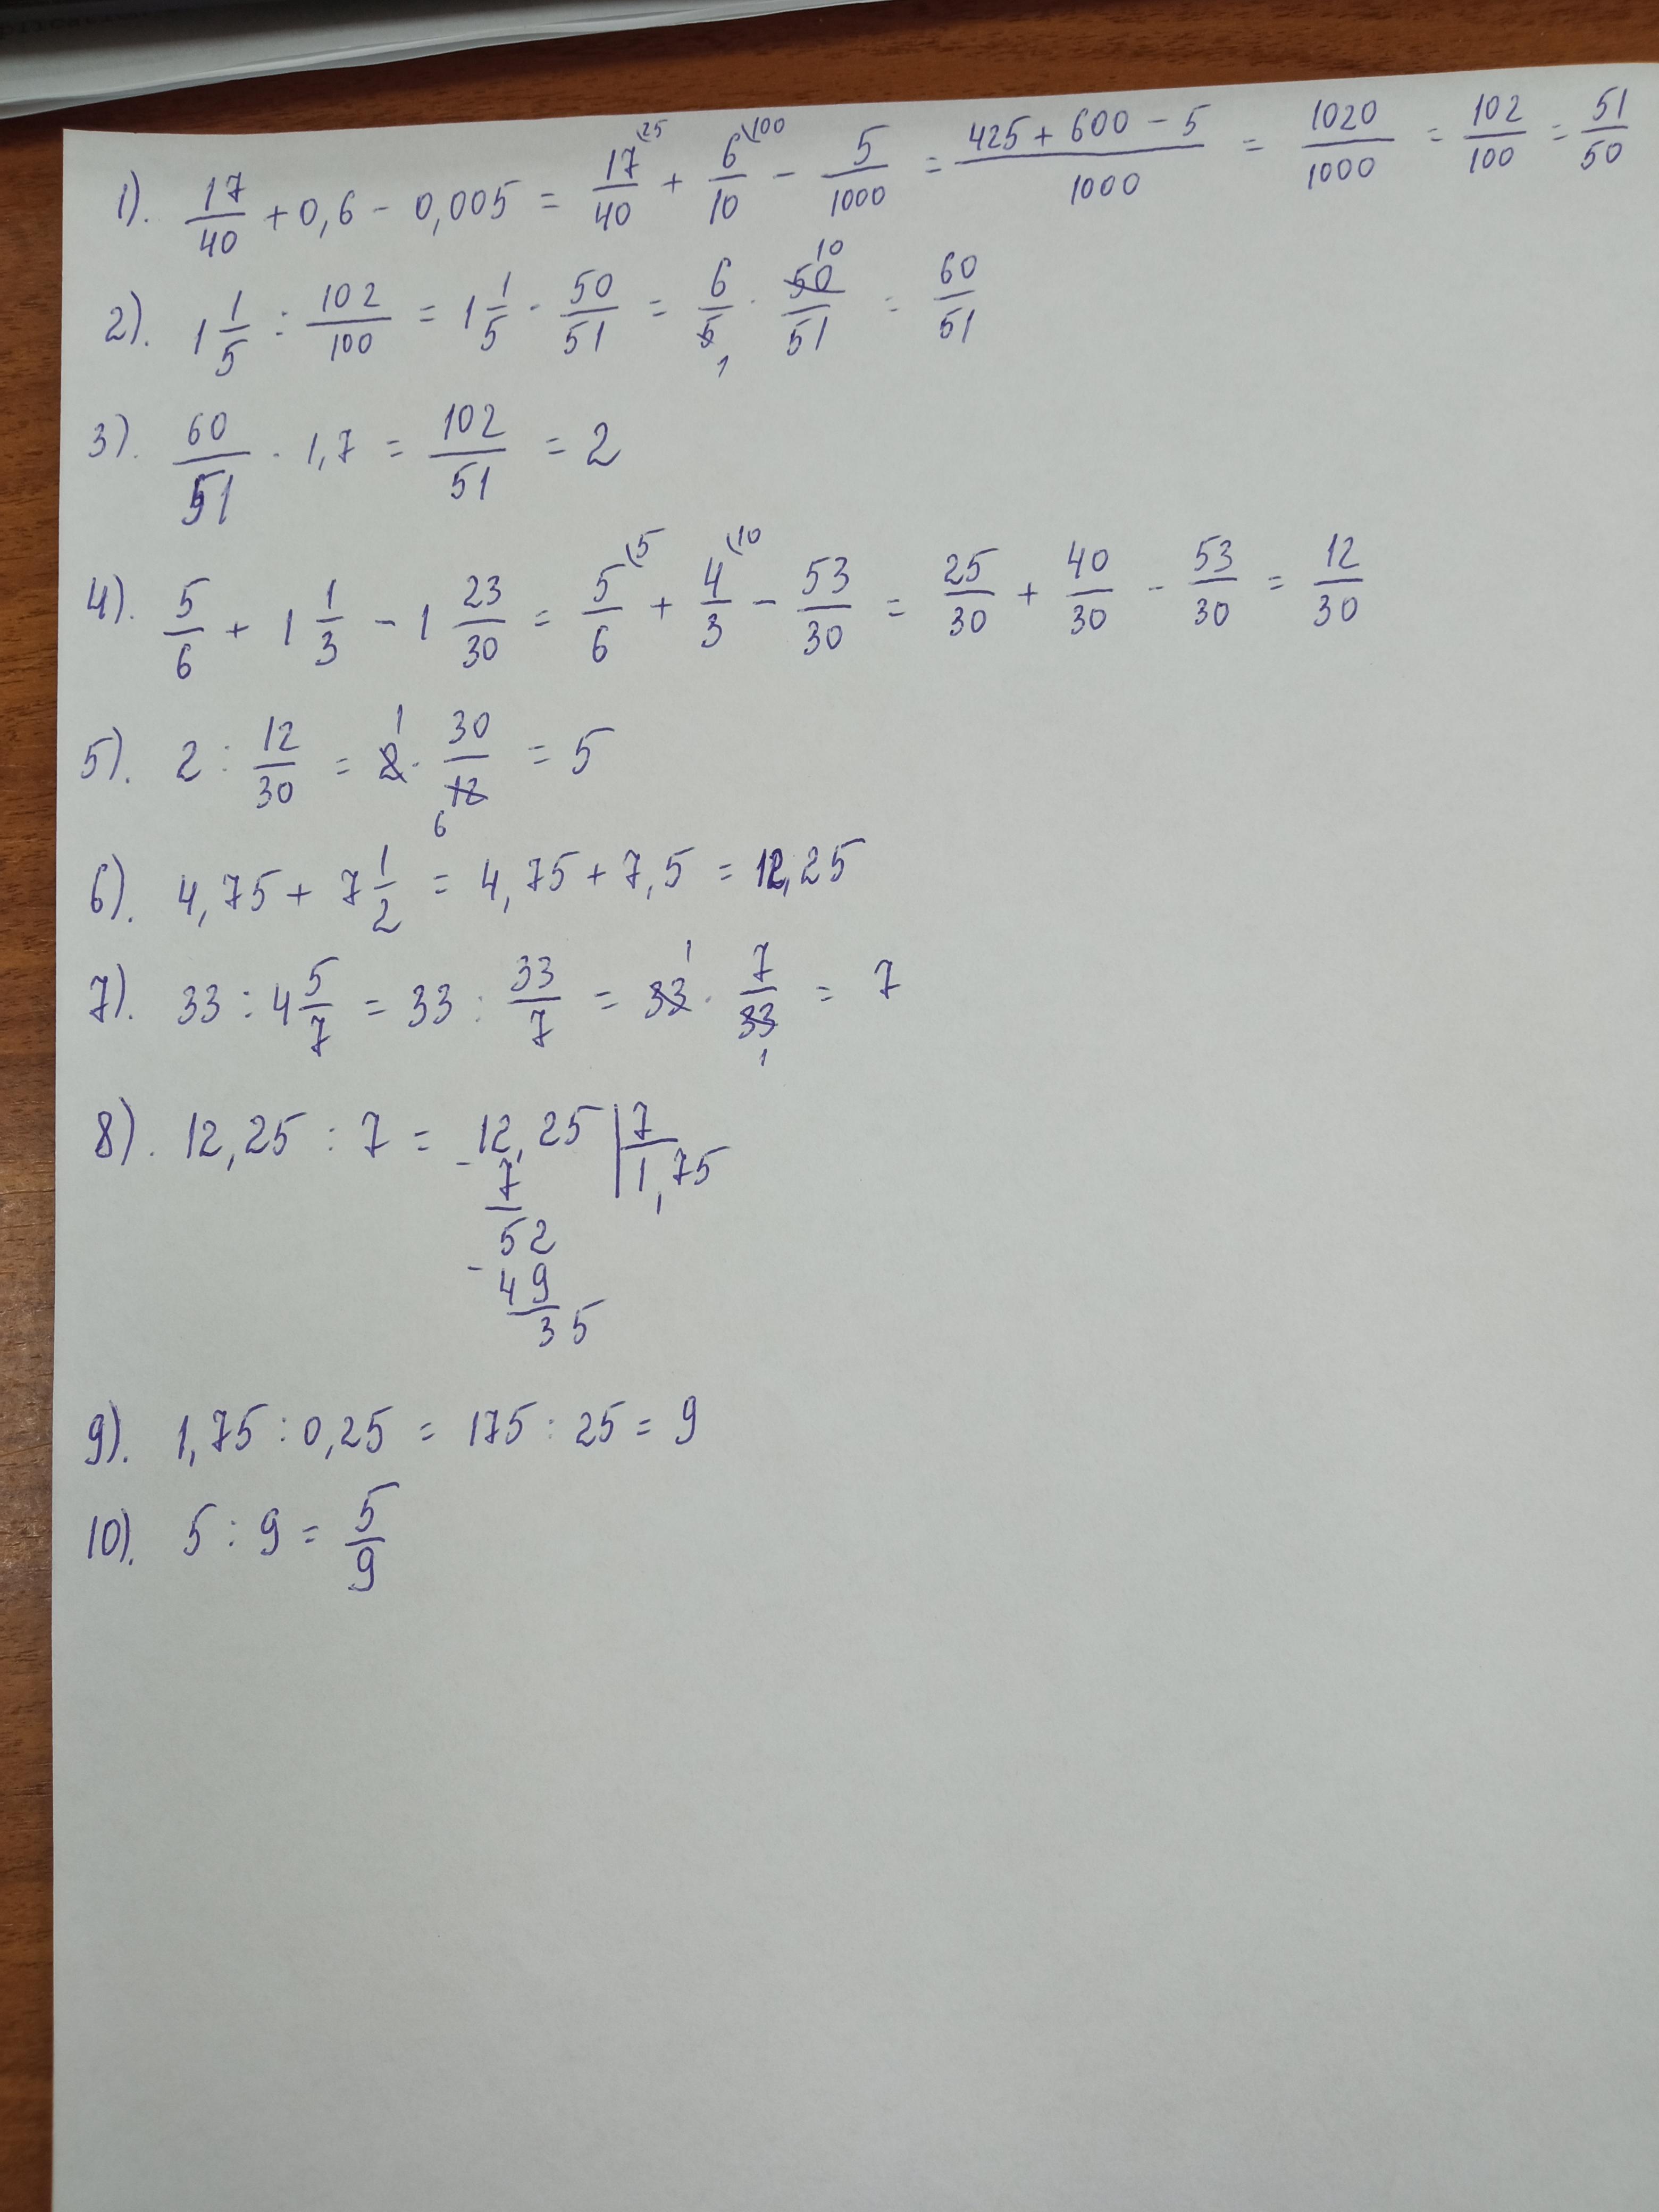 1). 17/40 + 0,6 - 0,005 = 17\25/40 + 6\100/10 - 5/1000 = (425 + 600 - 5)/1000 = 1020/1000 = 102/100 = 51/50
2). 1 1/5 : 102/100 = 1 1/5 · 50/51 = 6/5 1 · 50 10/51 = 60/51
3). 60/51 · 1,7 = 102/51 = 2
4). 5/6 + 1 1/3 - 1 23/30 = 5\5/6 + 4\10/3 - 53/30 = 25/30 + 40/30 - 53/30 = 12/30
5). 2 : 12/30 = 2 1 · 30/12 6 = 5
6). 4,75 + 7 1/2 = 4,75 + 7,5 = 12,25
7). 33 : 4 5/7 = 33 : 33/7 = 33 1 · 7/33 1 = 7
8). 12,25 : 7 = -12,25 | 7
7 1,75
52
- 49
35
9). 1,75 : 0,25 = 175 : 25 = 9
10). 5 : 9 = 5/9